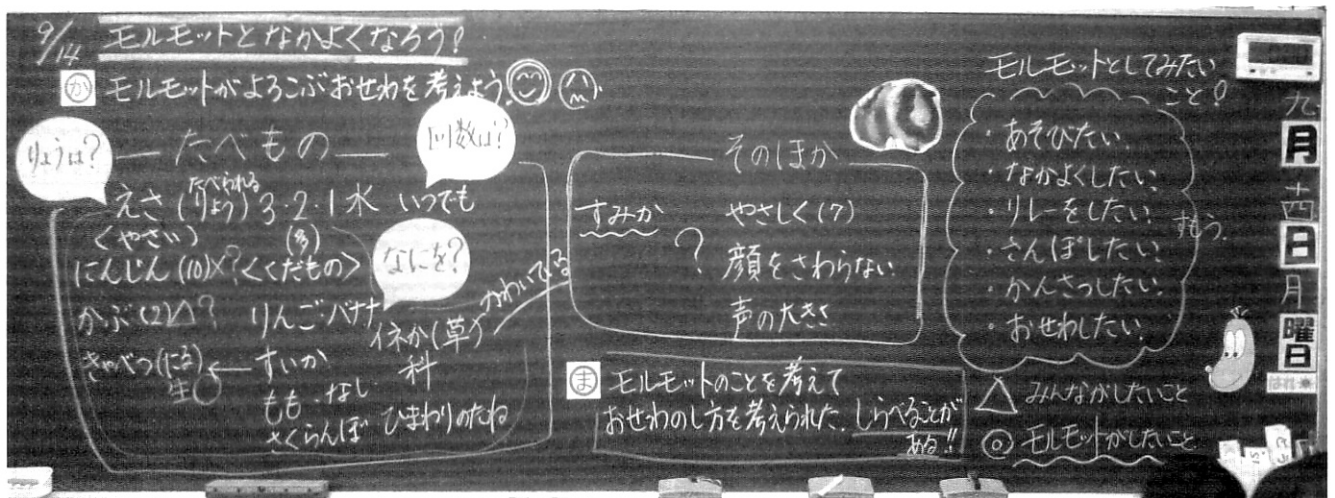 9/14 モルモットとなかよくなろう!
か モルモットがよろこぶおせわを考えよう。
りょうは?
たべもの
回数は?
えさ(たべられるりょう) 3・2・1 水 いつでも
<やさい> (多)
なにを?
にんじん(10)×? <くだもの>
かぶ(2)△? りんご・バナナ
イネか(草)
科
かわいている
きゃべつ(にる) ← すいか
生○
もも・なし
さくらんぼ
ひまわりのたね
そのほか
すみか
?
やさしく(7)
顔をさわらない
声の大きさ
ま モルモットのことを考えて
おせわのし方を考えられた。しらべることが
ある!!
モルモットとしてみたい
こと!
・あそびたい。
・なかよくしたい。
・リレーをしたい。
すもう。
・さんぽしたい。
・かんさつしたい。
・おせわしたい。
△ みんながしたいこと
◎ モルモットがしたいこと
九
月
十
四
日
月
曜
日
はれ